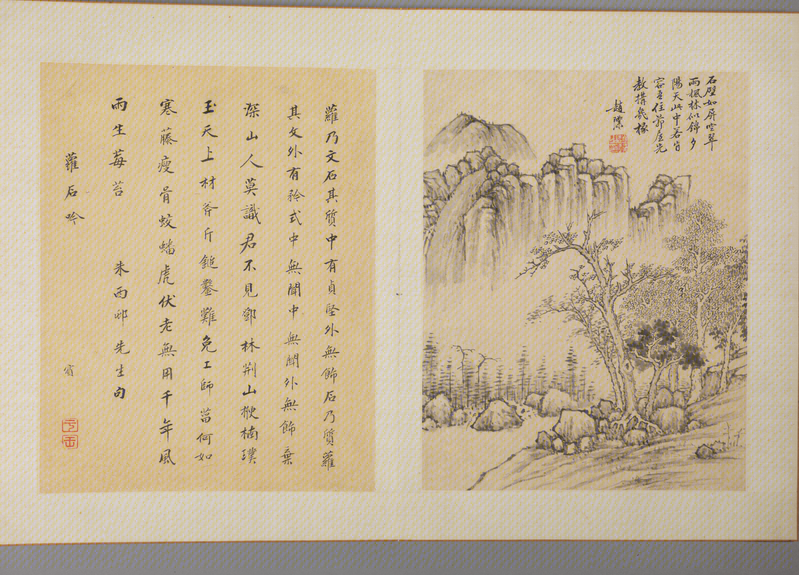 石壁如屏空翠
雨楓林似錦夕
陽天此中若有
容吾住茆屋先
教搆幾椽
趙
蘿乃文石其質中有貞堅外無飾石乃質蘿
其文外有矜式中無聞中無聞外無飾棄
深山人莫識君不見鄧林荆山楸楠璞
玉天上材斧斤鎚鑿難免工師菑何如
寒藤瘦骨蛟蟠虎伏老無用千年風
雨生莓苔 朱西邨先生句
蘿石吟